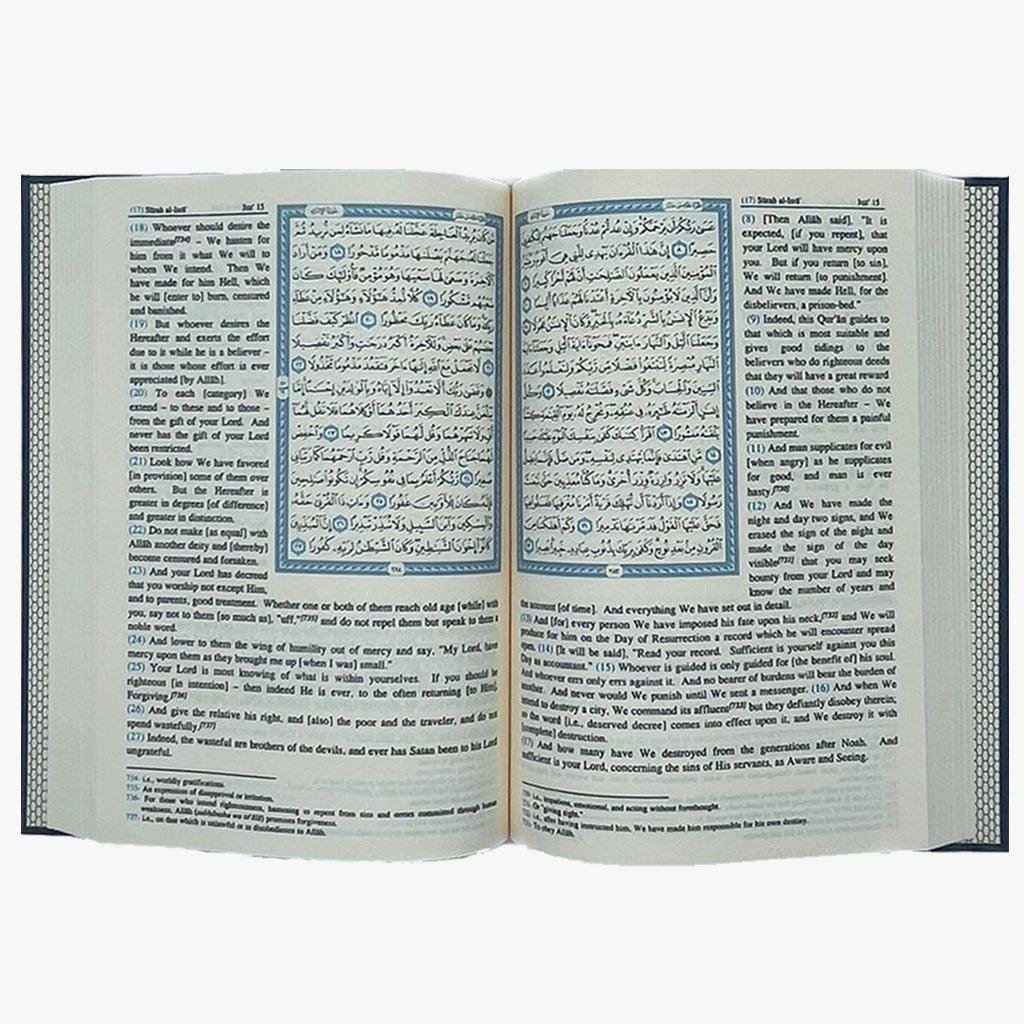 (17) Sūrah al-Isrā’ Juz’ 15
عَسَىٰ رَبُّكُمْ أَن يَرْحَمَكُمْ وَإِنْ عُدتُّمْ عُدْنَا وَجَعَلْنَا جَهَنَّمَ لِلْكَٰفِرِينَ
حَصِيرًا ٨ إِنَّ هَٰذَا ٱلْقُرْءَانَ يَهْدِى لِلَّتِى هِىَ أَقْوَمُ وَيُبَشِّرُ
ٱلْمُؤْمِنِينَ ٱلَّذِينَ يَعْمَلُونَ ٱلصَّٰلِحَٰتِ أَنَّ لَهُمْ أَجْرًا كَبِيرًا ٩
وَأَنَّ ٱلَّذِينَ لَا يُؤْمِنُونَ بِٱلْءَاخِرَةِ أَعْتَدْنَا لَهُمْ عَذَابًا أَلِيمًا ١٠
وَيَدْعُ ٱلْإِنسَٰنُ بِٱلشَّرِّ دُعَآءَهُۥ بِٱلْخَيْرِ وَكَانَ ٱلْإِنسَٰنُ عَجُولًا ١١
وَجَعَلْنَا ٱلَّيْلَ وَٱلنَّهَارَ ءَايَتَيْنِ فَمَحَوْنَآ ءَايَةَ ٱلَّيْلِ وَجَعَلْنَآ ءَايَةَ
ٱلنَّهَارِ مُبْصِرَةً لِّتَبْتَغُوا۟ فَضْلًا مِّن رَّبِّكُمْ وَلِتَعْلَمُوا۟ عَدَدَ
ٱلسِّنِينَ وَٱلْحِسَابَ وَكُلَّ شَىْءٍ فَصَّلْنَٰهُ تَفْصِيلًا ١٢ وَكُلَّ
إِنسَٰنٍ أَلْزَمْنَٰهُ طَٰٓئِرَهُۥ فِى عُنُقِهِۦ وَنُخْرِجُ لَهُۥ يَوْمَ ٱلْقِيَٰمَةِ كِتَٰبًا
يَلْقَىٰهُ مَنشُورًا ١٣ ٱقْرَأْ كِتَٰبَكَ كَفَىٰ بِنَفْسِكَ ٱلْيَوْمَ عَلَيْكَ حَسِيبًا
١٤ مَّنِ ٱهْتَدَىٰ فَإِنَّمَا يَهْتَدِى لِنَفْسِهِۦ وَمَن ضَلَّ فَإِنَّمَا يَضِلُّ
عَلَيْهَا وَلَا تَزِرُ وَازِرَةٌ وِزْرَ أُخْرَىٰ وَمَا كُنَّا مُعَذِّبِينَ حَتَّىٰ نَبْعَثَ
رَسُولًا ١٥ وَإِذَآ أَرَدْنَآ أَن نُّهْلِكَ قَرْيَةً أَمَرْنَا مُتْرَفِيهَا فَفَسَقُوا۟ فِيهَا
فَحَقَّ عَلَيْهَا ٱلْقَوْلُ فَدَمَّرْنَٰهَا تَدْمِيرًا ١٦ وَكَمْ أَهْلَكْنَا مِنَ
ٱلْقُرُونِ مِنۢ بَعْدِ نُوحٍ وَكَفَىٰ بِرَبِّكَ بِذُنُوبِ عِبَادِهِۦ خَبِيرًۢا بَصِيرًا ١٧
٢٨٣
(8) [Then Allāh said], "It is
expected, [if you repent], that
your Lord will have mercy upon
you. But if you return [to sin],
We will return [to punishment].
And We have made Hell, for the
disbelievers, a prison-bed."
(9) Indeed, this Qur’ān guides to
that which is most suitable and
gives good tidings to the
believers who do righteous deeds
that they will have a great reward
(10) And that those who do not
believe in the Hereafter – We
have prepared for them a painful
punishment.
(11) And man supplicates for evil
[when angry] as he supplicates
for good, and man is ever
hasty.[730]
(12) And We have made the
night and day two signs, and We
erased the sign of the night and
made the sign of the day
visible[731] that you may seek
bounty from your Lord and may
know the number of years and
the account [of time]. And everything We have set out in detail.
(13) And [for] every person We have imposed his fate upon his neck,[732] and We will
produce for him on the Day of Resurrection a record which he will encounter spread
open. (14) [It will be said], "Read your record. Sufficient is yourself against you this
Day as accountant." (15) Whoever is guided is only guided for [the benefit of] his soul.
And whoever errs only errs against it. And no bearer of burdens will bear the burden of
another. And never would We punish until We sent a messenger. (16) And when We
intend to destroy a city, We command its affluent[733] but they defiantly disobey therein;
so the word [i.e., deserved decree] comes into effect upon it, and We destroy it with
[complete] destruction.
(17) And how many have We destroyed from the generations after Noah. And
sufficient is your Lord, concerning the sins of His servants, as Aware and Seeing.
i.e., impatient, emotional, and acting without forethought.
Or "giving sight."
i.e., after having instructed him, We have made him responsible for his own destiny.
To obey Allāh.
(17) Sūrah al-Isrā’ Juz’ 15
مَّن كَانَ يُرِيدُ ٱلْعَاجِلَةَ عَجَّلْنَا لَهُۥ فِيهَا مَا نَشَآءُ لِمَن نُّرِيدُ ثُمَّ
جَعَلْنَا لَهُۥ جَهَنَّمَ يَصْلَىٰهَا مَذْمُومًا مَّدْحُورًا ١٨ وَمَنْ أَرَادَ
ٱلْءَاخِرَةَ وَسَعَىٰ لَهَا سَعْيَهَا وَهُوَ مُؤْمِنٌ فَأُو۟لَٰٓئِكَ كَانَ
سَعْيُهُم مَّشْكُورًا ١٩ كُلًّا نُّمِدُّ هَٰٓؤُلَآءِ وَهَٰٓؤُلَآءِ مِنْ عَطَآءِ
رَبِّكَ وَمَا كَانَ عَطَآءُ رَبِّكَ مَحْظُورًا ٢٠ ٱنظُرْ كَيْفَ فَضَّلْنَا
بَعْضَهُمْ عَلَىٰ بَعْضٍ وَلَلْءَاخِرَةُ أَكْبَرُ دَرَجَٰتٍ وَأَكْبَرُ تَفْضِيلًا
٢١ لَّا تَجْعَلْ مَعَ ٱللَّهِ إِلَٰهًا ءَاخَرَ فَتَقْعُدَ مَذْمُومًا مَّخْذُولًا ٢٢
۞ وَقَضَىٰ رَبُّكَ أَلَّا تَعْبُدُوٓا۟ إِلَّآ إِيَّاهُ وَبِٱلْوَٰلِدَيْنِ إِحْسَٰنًا إِمَّا
يَبْلُغَنَّ عِندَكَ ٱلْكِبَرَ أَحَدُهُمَآ أَوْ كِلَاهُمَا فَلَا تَقُل لَّهُمَآ
أُفٍّ وَلَا تَنْهَرْهُمَا وَقُل لَّهُمَا قَوْلًا كَرِيمًا ٢٣ وَٱخْفِضْ
لَهُمَا جَنَاحَ ٱلذُّلِّ مِنَ ٱلرَّحْمَةِ وَقُل رَّبِّ ٱرْحَمْهُمَا كَمَا رَبَّيَانِى
صَغِيرًا ٢٤ رَّبُّكُمْ أَعْلَمُ بِمَا فِى نُفُوسِكُمْ إِن تَكُونُوا۟ صَٰلِحِينَ
فَإِنَّهُۥ كَانَ لِلْأَوَّٰبِينَ غَفُورًا ٢٥ وَءَاتِ ذَا ٱلْقُرْبَىٰ حَقَّهُۥ
وَٱلْمِسْكِينَ وَٱبْنَ ٱلسَّبِيلِ وَلَا تُبَذِّرْ تَبْذِيرًا ٢٦ إِنَّ ٱلْمُبَذِّرِينَ
كَانُوٓا۟ إِخْوَٰنَ ٱلشَّيَٰطِينِ وَكَانَ ٱلشَّيْطَٰنُ لِرَبِّهِۦ كَفُورًا ٢٧
٢٨٤
(18) Whoever should desire the
immediate[734] – We hasten for
him from it what We will to
whom We intend. Then We
have made for him Hell, which
he will [enter to] burn, censured
and banished.
(19) But whoever desires the
Hereafter and exerts the effort
due to it while he is a believer –
it is those whose effort is ever
appreciated [by Allāh].
(20) To each [category] We
extend – to these and to those –
from the gift of your Lord. And
never has the gift of your Lord
been restricted.
(21) Look how We have favored
[in provision] some of them over
others. But the Hereafter is
greater in degrees [of difference]
and greater in distinction.
(22) Do not make [as equal] with
Allāh another deity and [thereby]
become censured and forsaken.
(23) And your Lord has decreed
that you worship not except Him,
and to parents, good treatment. Whether one or both of them reach old age [while] with
you, say not to them [so much as], "uff,"[735] and do not repel them but speak to them a
noble word.
(24) And lower to them the wing of humility out of mercy and say, "My Lord, have
mercy upon them as they brought me up [when I was] small."
(25) Your Lord is most knowing of what is within yourselves. If you should be
righteous [in intention] – then indeed He is ever, to the often returning [to Him],
Forgiving.[736]
(26) And give the relative his right, and [also] the poor and the traveler, and do not
spend wastefully.[737]
(27) Indeed, the wasteful are brothers of the devils, and ever has Satan been to his Lord
ungrateful.
734- i.e., worldly gratifications.
735- An expression of disapproval or irritation.
736- For those who intend righteousness, hastening to repent from sins and errors committed through human
weakness, Allāh (subḥānahu wa taʿālā) promises forgiveness.
737- i.e., on that which is unlawful or in disobedience to Allāh.